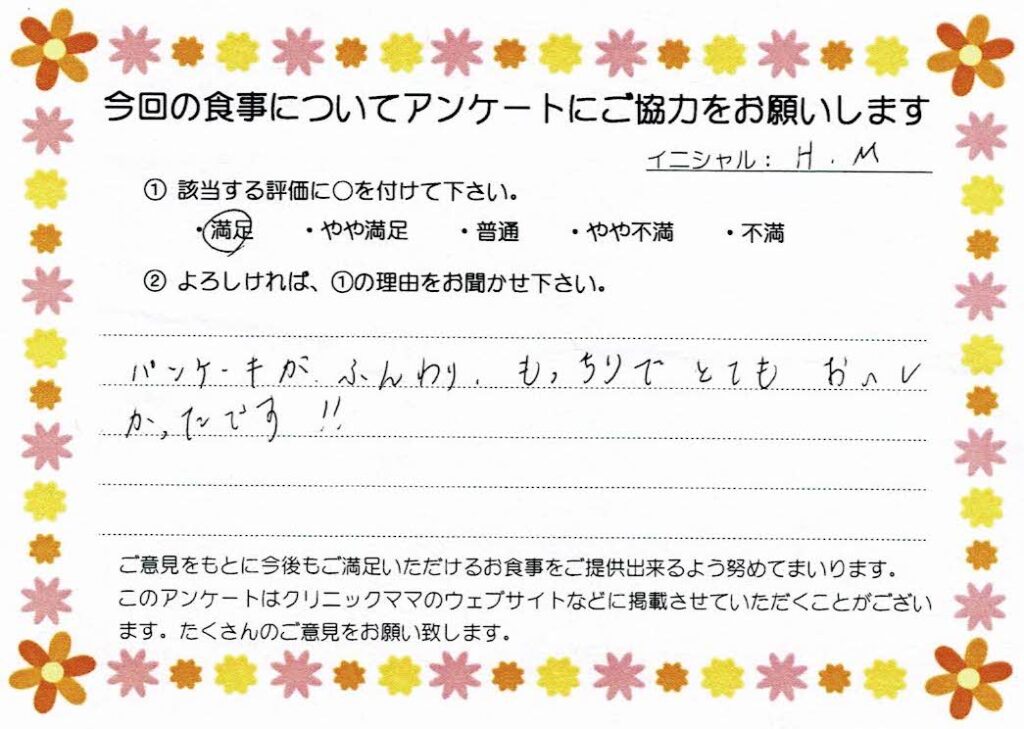 今回の食事についてアンケートにご協力をお願いします
イニシャル： H . M
① 該当する評価に〇を付けて下さい。
・満足 ・やや満足 ・普通 ・やや不満 ・不満
② よろしければ、①の理由をお聞かせ下さい。
パンケーキが、ふんわり、もっちりで とても おいし
かったです !!
ご意見をもとに今後もご満足いただけるお食事をご提供出来るよう努めてまいります。
このアンケートはクリニックママのウェブサイトなどに掲載させていただくことがござい
ます。たくさんのご意見をお願い致します。